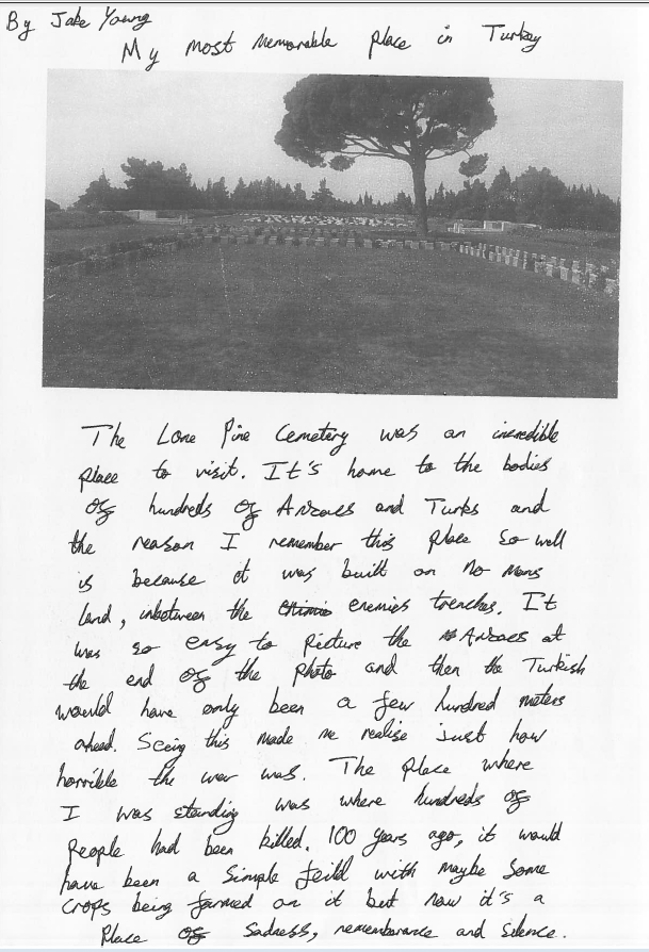 By Jake Young
My most memorable place in Turkey
The Lone Pine Cemetery was an incredible
place to visit. It's home to the bodies
of hundreds of Anzacs and Turks and
the reason I remember this place so well
is because it was built on No Mans
land, inbetween the enemies trenches. It
was so easy to picture the Anzacs at
the end of the photo and then the Turkish
would have only been a few hundred meters
ahead. Seeing this made me realise just how
horrible the war was. The place where
I was standing was where hundreds of
people had been killed. 100 years ago, it would
have been a simple feild with maybe some
crops being farmed on it but now it's a
place of sadness, rememberance and silence.